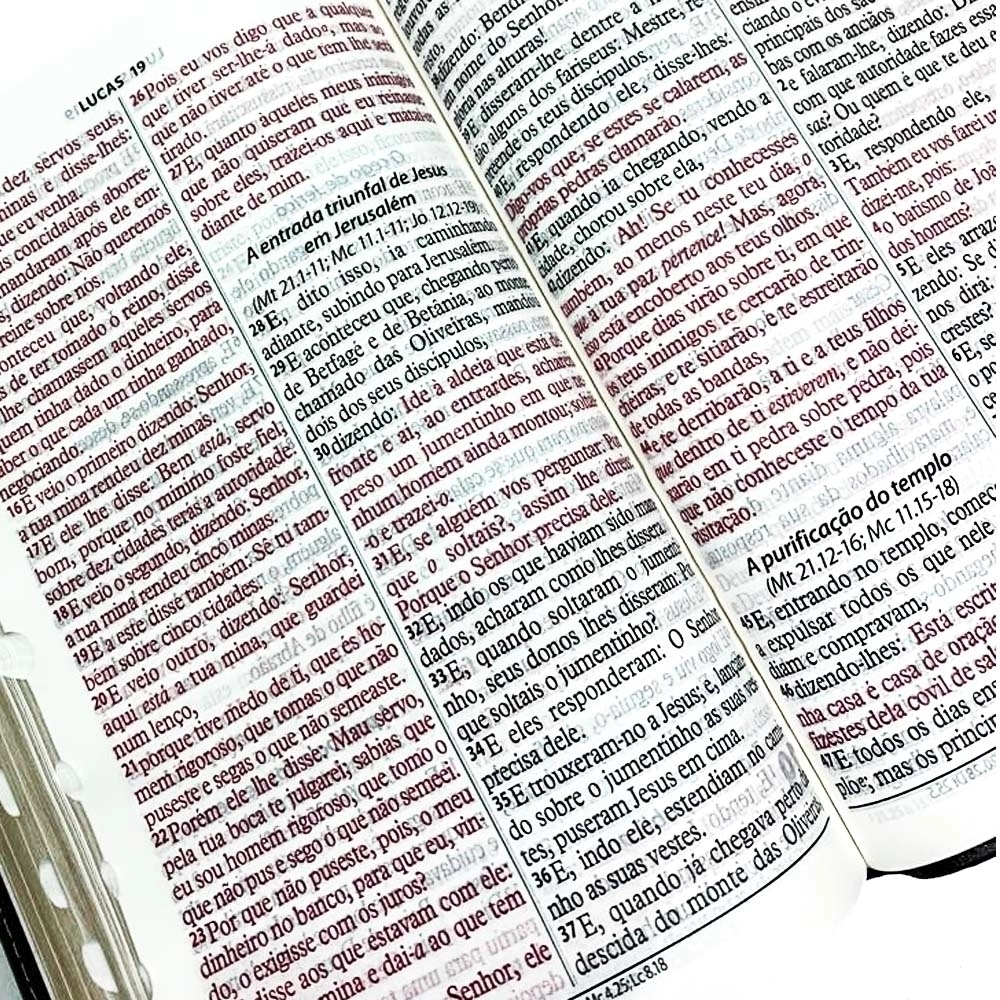 LUCAS 19
dez servos seus,
minas e disse-lhes:
eu venha.
concidadãos aborre-
mandaram após ele em-
dizendo: Não queremos
reine sobre nós.
aconteceu que, voltando ele,
de ter tomado o reino, disse
lhe chamassem aqueles servos
quem tinha dado o dinheiro, para
saber o que cada um tinha ganhado,
negociando.
16 E veio o primeiro dizendo: Senhor,
a tua mina rendeu dez minas.
17 E ele lhe disse: Bem está, servo
bom, porque no mínimo foste fiel,
sobre dez cidades terás a autoridade.
18 E veio o segundo, dizendo: Senhor,
a tua mina rendeu cinco minas.
19 E a este disse também: Sê tu tam-
bém sobre cinco cidades.
20 E veio outro, dizendo: Senhor,
aqui está a tua mina, que guardei
num lenço,
21 porque tive medo de ti, que és ho-
mem rigoroso, que tomas o que não
puseste e segas o que não semeaste.
22 Porém ele lhe disse: Mau servo,
pela tua boca te julgarei; sabias que
eu sou homem rigoroso, que tomo o
que não pus e sego o que não semeei.
23 Por que não puseste, pois, o meu
dinheiro no banco, para que eu, vin-
do, o exigisse com os juros?
disse aos que estavam com ele:
mina e dai-a ao que tem
Senhor, ele
26 Pois eu vos digo que a qualquer
que tiver ser-lhe-á dado, mas ao
que não tiver até o que tem lhe será
tirado.
27 E, quanto àqueles meus inimigos
que não quiseram que eu reinasse
sobre eles, trazei-os aqui e matai-os
diante de mim.
A entrada triunfal de Jesus
em Jerusalém
(Mt 21.1-11; Mc 11.1-11; Jo 12.12-19)
28 E, dito isso, ia caminhando
adiante, subindo para Jerusalém.
29 E aconteceu que, chegando perto
de Betfagé e de Betânia, ao monte
chamado das Oliveiras, mandou
dois dos seus discípulos,
30 dizendo: Ide à aldeia que está de-
fronte e aí, ao entrardes, achareis
preso um jumentinho em que ne-
nhum homem ainda montou; soltai-
-o e trazei-o.
31 E, se alguém vos perguntar: Por
que o soltais?, assim lhe direis:
Porque o Senhor precisa dele.
32 E, indo os que haviam sido man-
dados, acharam como lhes dissera.
33 E, quando soltaram o jumenti-
nho, seus donos lhes disseram: Por
que soltais o jumentinho?
34 E eles responderam: O Senhor
precisa dele.
35 E trouxeram-no a Jesus; e, lançan-
do sobre o jumentinho as suas ves-
tes, puseram Jesus em cima.
36 E, indo ele, estendiam no cami-
nho as suas vestes.
37 E, quando já chegava perto da
descida do monte das Oliveiras,
Mc 4.25; Lc 8.18
dizendo: Bendi
nome do Senhor!
nas alturas!
E disseram-lhe, dentre a
alguns dos fariseus: Mestre, re-
preende os teus discípulos.
E, respondendo ele, disse-lhes:
Digo-vos que, se estes se calarem, as
próprias pedras clamarão.
E, quando ia chegando, vendo a
cidade, chorou sobre ela,
dizendo: Ah! Se tu conhecesses
também, ao menos neste teu dia, o
que à tua paz pertence! Mas, agora,
isso está encoberto aos teus olhos.
Porque dias virão sobre ti, em que
os teus inimigos te cercarão de trin-
cheiras, e te sitiarão, e te estreitarão
de todas as bandas,
e te derribarão, a ti e a teus filhos
que dentro de ti estiverem, e não dei-
xarão em ti pedra sobre pedra, pois
que não conheceste o tempo da tua
visitação.
A purificação do templo
(Mt 21.12-16; Mc 11.15-18)
45 E, entrando no templo, começou
a expulsar todos os que nele
diam e compravam,
46 dizendo-lhes: Está escrito
nha casa é casa de oração
fizestes dela covil de sal
47 E todos os dias en
plo; mas os princip
ciando o e
principais dos
bas com os anciãos
2 e falaram-lhe, dizendo: D
com que autoridade fazes essa
sas? Ou quem é que te deu e
toridade?
3 E, respondendo ele,
Também eu vos farei u
dizei-me, pois:
4 o batismo de Joã
dos homens?
5 E eles arraz
zendo: Se d
nos dirá:
crestes?
6 E, se
o po